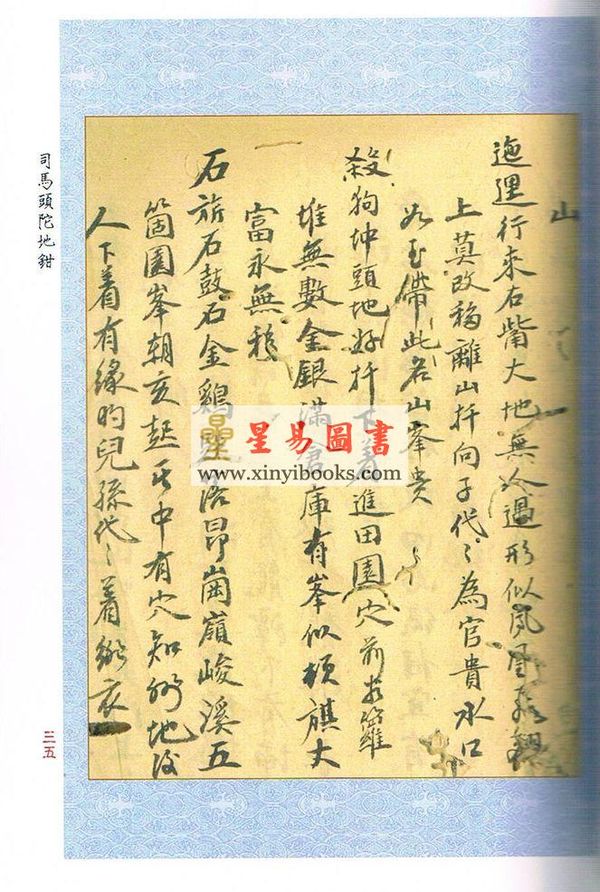 山
迤邐行來石嘴大地無人遇形似鳳凰
上莫改移離山扦向子代〻為官貴水口
如玉帶此名山峯貴
殺狗坤頭地好扦下着進田園穴前
堆無數金銀滿倉庫有峯似頓旗大
富永無移
石旂石鼓石金鷄 洛昂崗嶺峻溪五
箇圓峯朝亥起其中有穴知 地改
人下着有緣的兒孫代〻着 衣
司馬頭陀地鉗
三五
星易圖書
www.xinyibooks.com